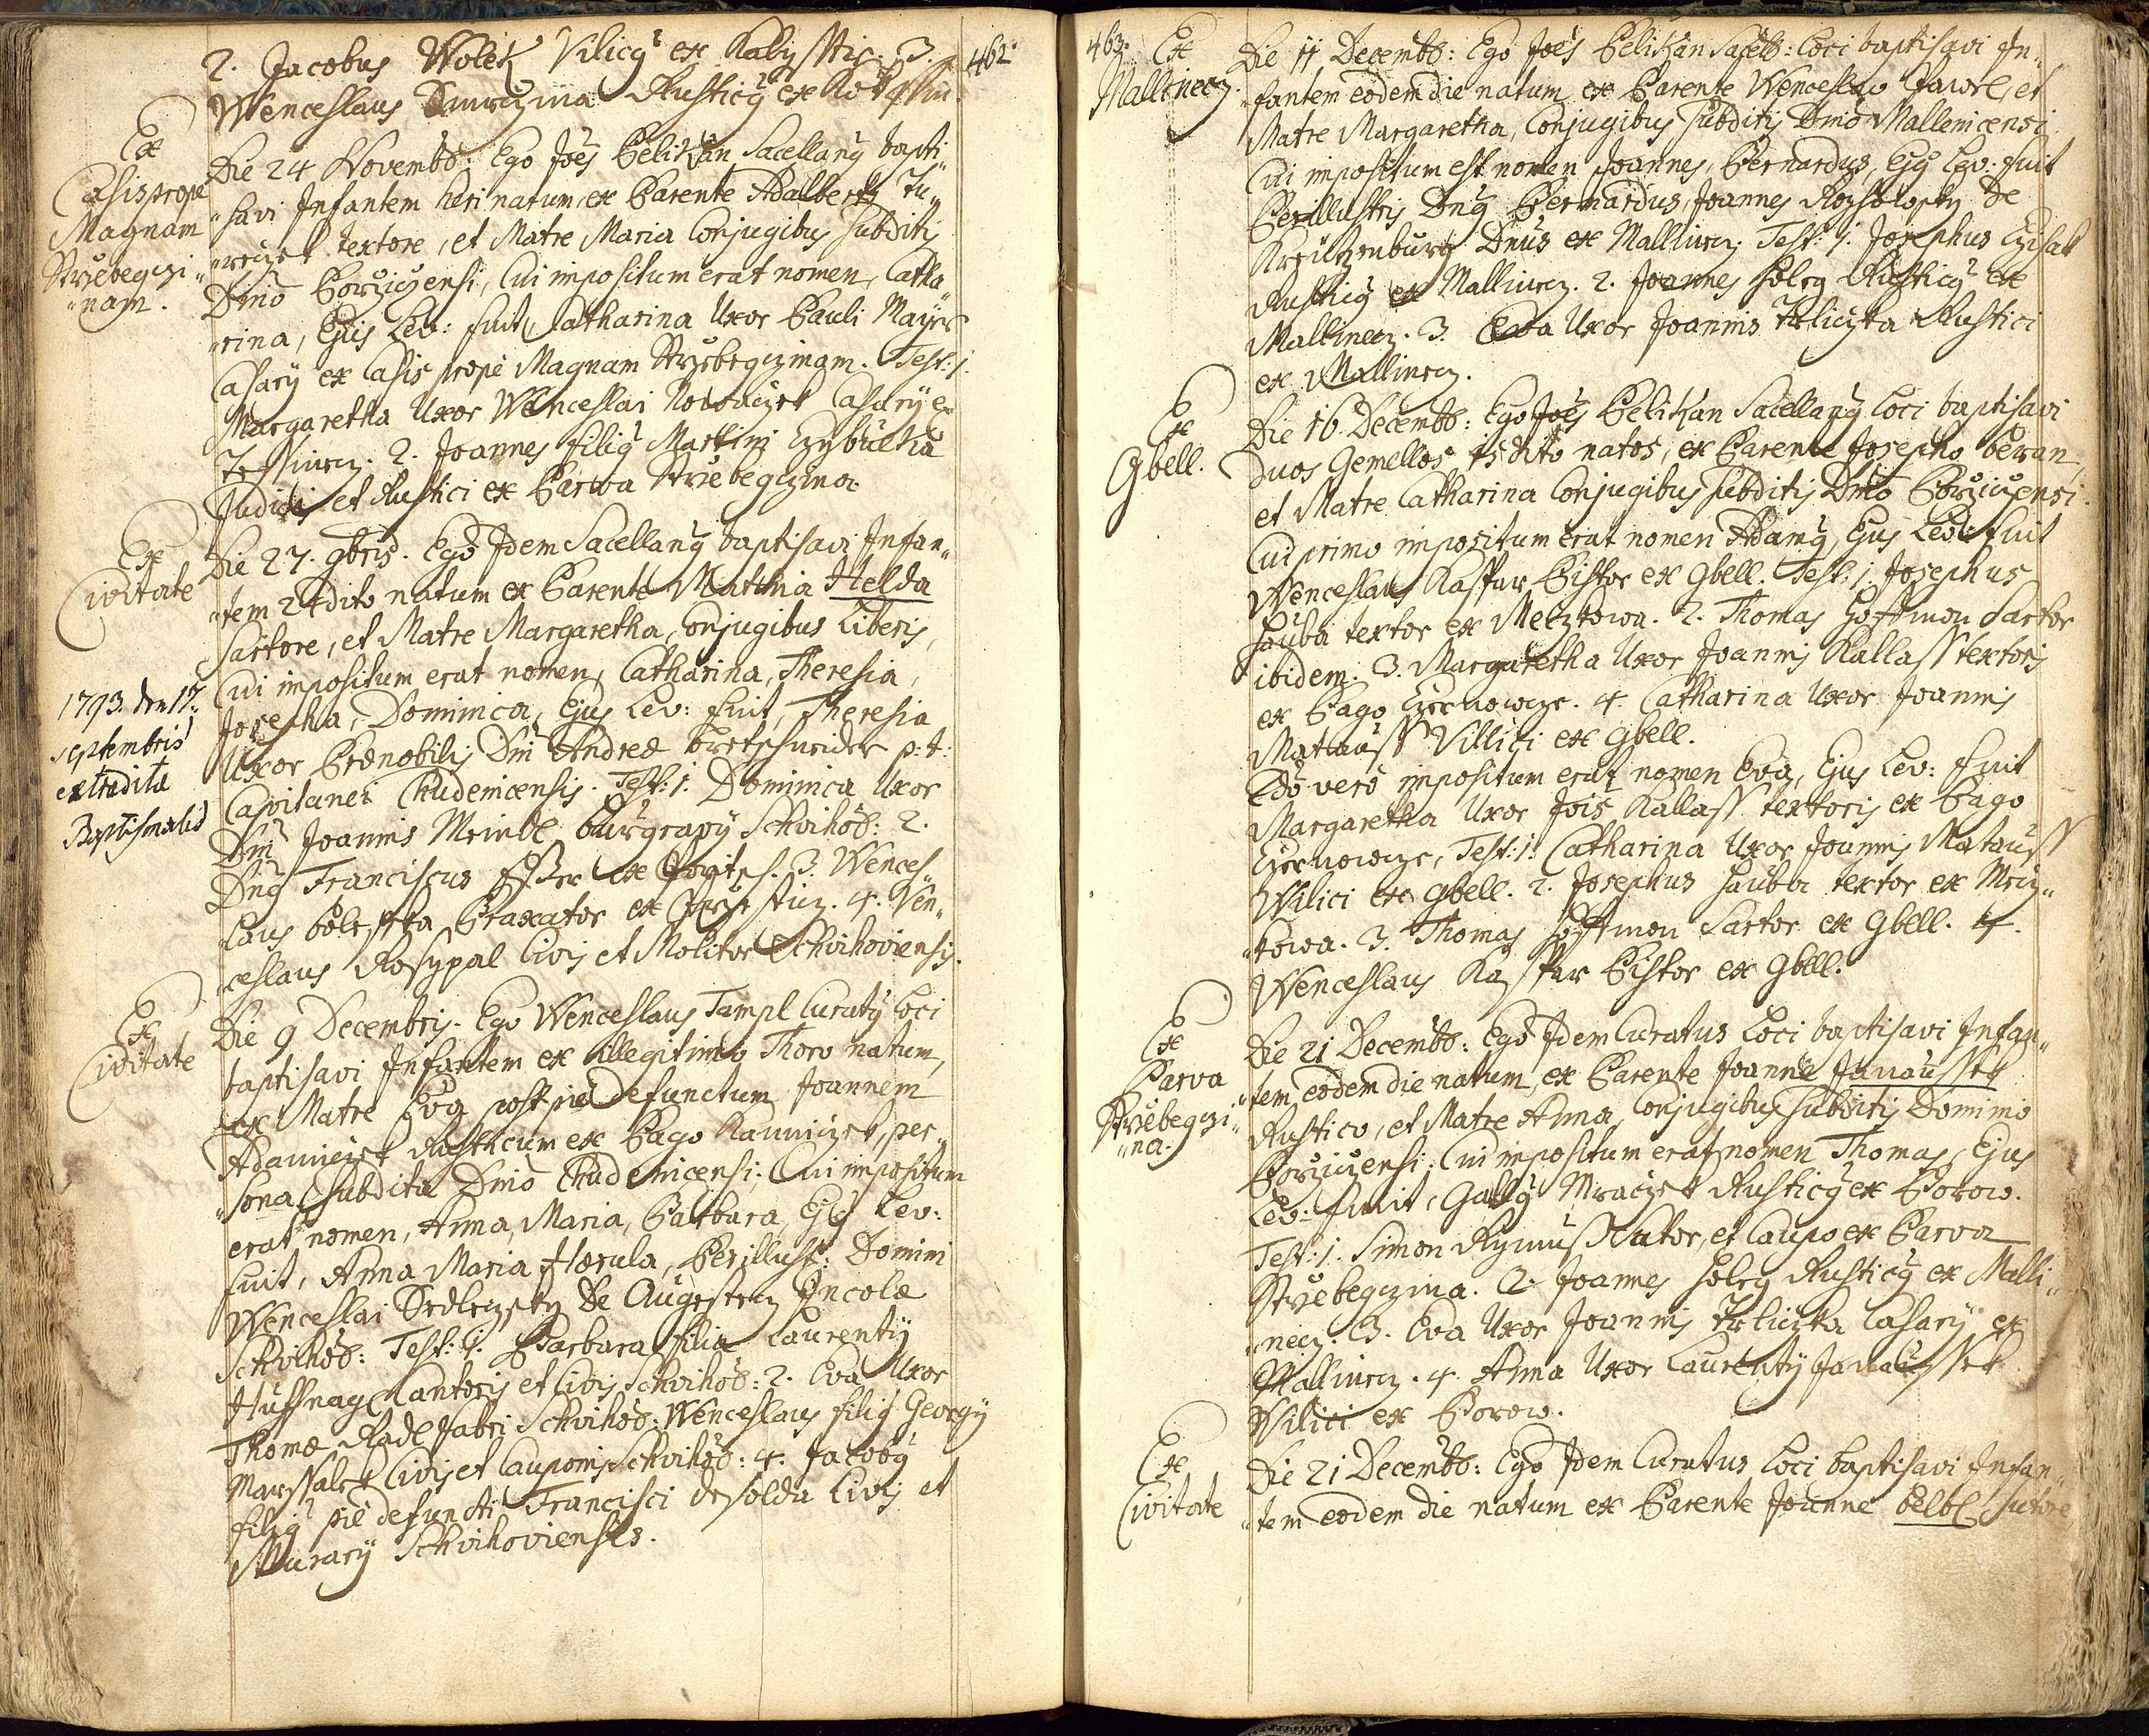 462.
2. Jacobus Wolek Vilicq ex Kaliz 3.
Wenceslaus Rusticq ex
Ex
Casis prope
Magnam
Strzebeczi„
„nam.
Die 24 Novemb: Ego Joes Pelikan Sacellanq bapti„
„savi Infantem heri natum, ex Parente Adalberto Tu„
textore, et Matre Maria Conjugibus subditis
Dmo Borzicensi, Cui impositum erat nomen, Catha„
„rina, Ejus Lev: fuit, Catharina Uxor Pauli Mayer
Casarij ex Casis prope Magnam Strzebeczinam. Test: 1.
Margaretha Uxor Wenceslai Nowaczek Casarij ex
2. Joannes filiq Martini Czybulka
Judicis et Rustici ex Parva Strzebeczina
Ex
Civitate
Die 27. 9bris. Ego Idem Sacellanq baptisavi Infan„
„tem 24 dito natum ex Parente Mathia Helda
Sartore, et Matre Margaretha, Conjugibus Liberis,
Cui impositum erat nomen, Catharina, Theresia,
1793. den 17.
septembris
extraditæ
Baptismales
Josepha, Dominica, Ejus Lev: fuit, Theresia
Uxor Prænobilis Dni Andreæ Bretschneider p: t:
Capitanei Chudenicensis. Test: 1. Dominica Uxor
Dni Joannis Meindl burgravij Schvihov: 2.
Dnq Franciscus ex 3. Wences„
laus Braxator ex 4. Wen„
ceslaus Rosypal Civis et Molitor Schvihoviensis.
Ex
Civitate
Die 9 Decembris. Ego Wenceslaus Tampl Curatq Loci
baptisavi Infantem ex illegitimo Thoro natum,
ex Matre Eva post pie Defunctum Joannem
Adamiczek Rusticum ex Pago Kauniczek, per„
„sona subdita Dmo Chudenicensi, Cui impositum
erat nomen, Anna, Maria, Barbara, Ejq Lev:
fuit, Anna Maria Hærula, Perillust: Domini
Wenceslai Sedleczky De Augesteez Incolæ
Schvihov: Test: 1. Barbara filia Laurentij
Huffnagl Cantoris et Civis Schvihov: 2. Eva Uxor
Thomæ Radl fabri Schvihov: Wenceslaus filiq Georgij
Marssalek Civis et Cauponis Schvihov: 4. Jacobq
filiq pie defuncti Francisci Desolda Civis et
Murarij Schvihoviensis.
463.
Ex
Mallinecz.
Die 11 Decemb: Ego Joes Pelikan Sacell: Loci baptisavi In„
„fantem eodem die natum, ex Parente Wenceslao Jawor, et
Matre Margaretha, Conjugibus subditis Dmo Mallinicensi
Cui impositum est nomen Joannes, Bernardus, Ejq Lev: fuit
Perillustris Dnq Bernardus, Joannes De
Kreützenburg Dnus ex Mallinecz. Test: 1. Josephus Czisak
Rusticq ex Mallinecz. 2. Joannes Holey Rusticq ex
Mallinecz. 3. Eva Uxor Joannis Trliczka Rustici
ex Mallinecz.
Ex
Gbell.
Die 16 Decemb: Ego Joes Pelikan Sacellanq Loci baptisavi
Duos Gemellos 15 dito natos, ex Parente Josepho Beran,
et Matre Catharina Conjugibus subditis Dmo Borzicensi.
Cui primo impositum erat nomen Adamq, Ejus Lev: fuit
Wenceslaus Kasspar Pistor ex Gbell. Test: 1. Josephus
Hauba textor ex Meczkowa. 2. Thomas Hoffmon Sartor
ibidem. 3. Margaretha Uxor Joannis Kallass textoris
ex Pago 4. Catharina Uxor Joannis
Matauss Villici ex Gbell.
2do vero impositum erat nomen Eva, Ejus Lev: fuit
Margaretha Uxor Jois Kallass textoris ex Pago
Test: 1. Catharina Uxor Joannis Matauss
Wilici ex Gbell. 2. Josephus Hauba textor ex Mecz„
„kowa. 3. Thomas Hoffmon Sartor ex Gbell. 4.
Wenceslaus Kasspar Pistor ex Gbell.
Ex
Parva
Strzebeczi„
„na.
Die 21 Decemb: Ego Idem Curatus Loci baptisavi Infan„
„tem eodem die natum, ex Parente Joanne Janaussek
Rustico, et Matre Anna, Conjugibus subditis Dominio
Borzicensi, Cui impositum erat nomen Thomas, Ejus
Lev: fuit, Gallq Mraczek Rusticq ex Borow.
Test: 1. Simon Rymuss Sutor, et Caupo ex Parva
Strzebeczina. 2. Joannes Holey Rusticq ex Malli„
„necz. 3. Eva Uxor Joannis Trliczka Casarij ex
Mallinecz. 4. Anna Uxor Laurentij Janaussek
Wilici ex Borow.
Ex
Civitate
Die 21 Decemb: Ego Idem Curatus Loci baptisavi Infan„
„tem eodem die natum ex Parente Joanne Belbl Sutore